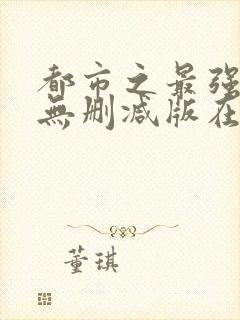 都市之最强
無删减版在
董琪